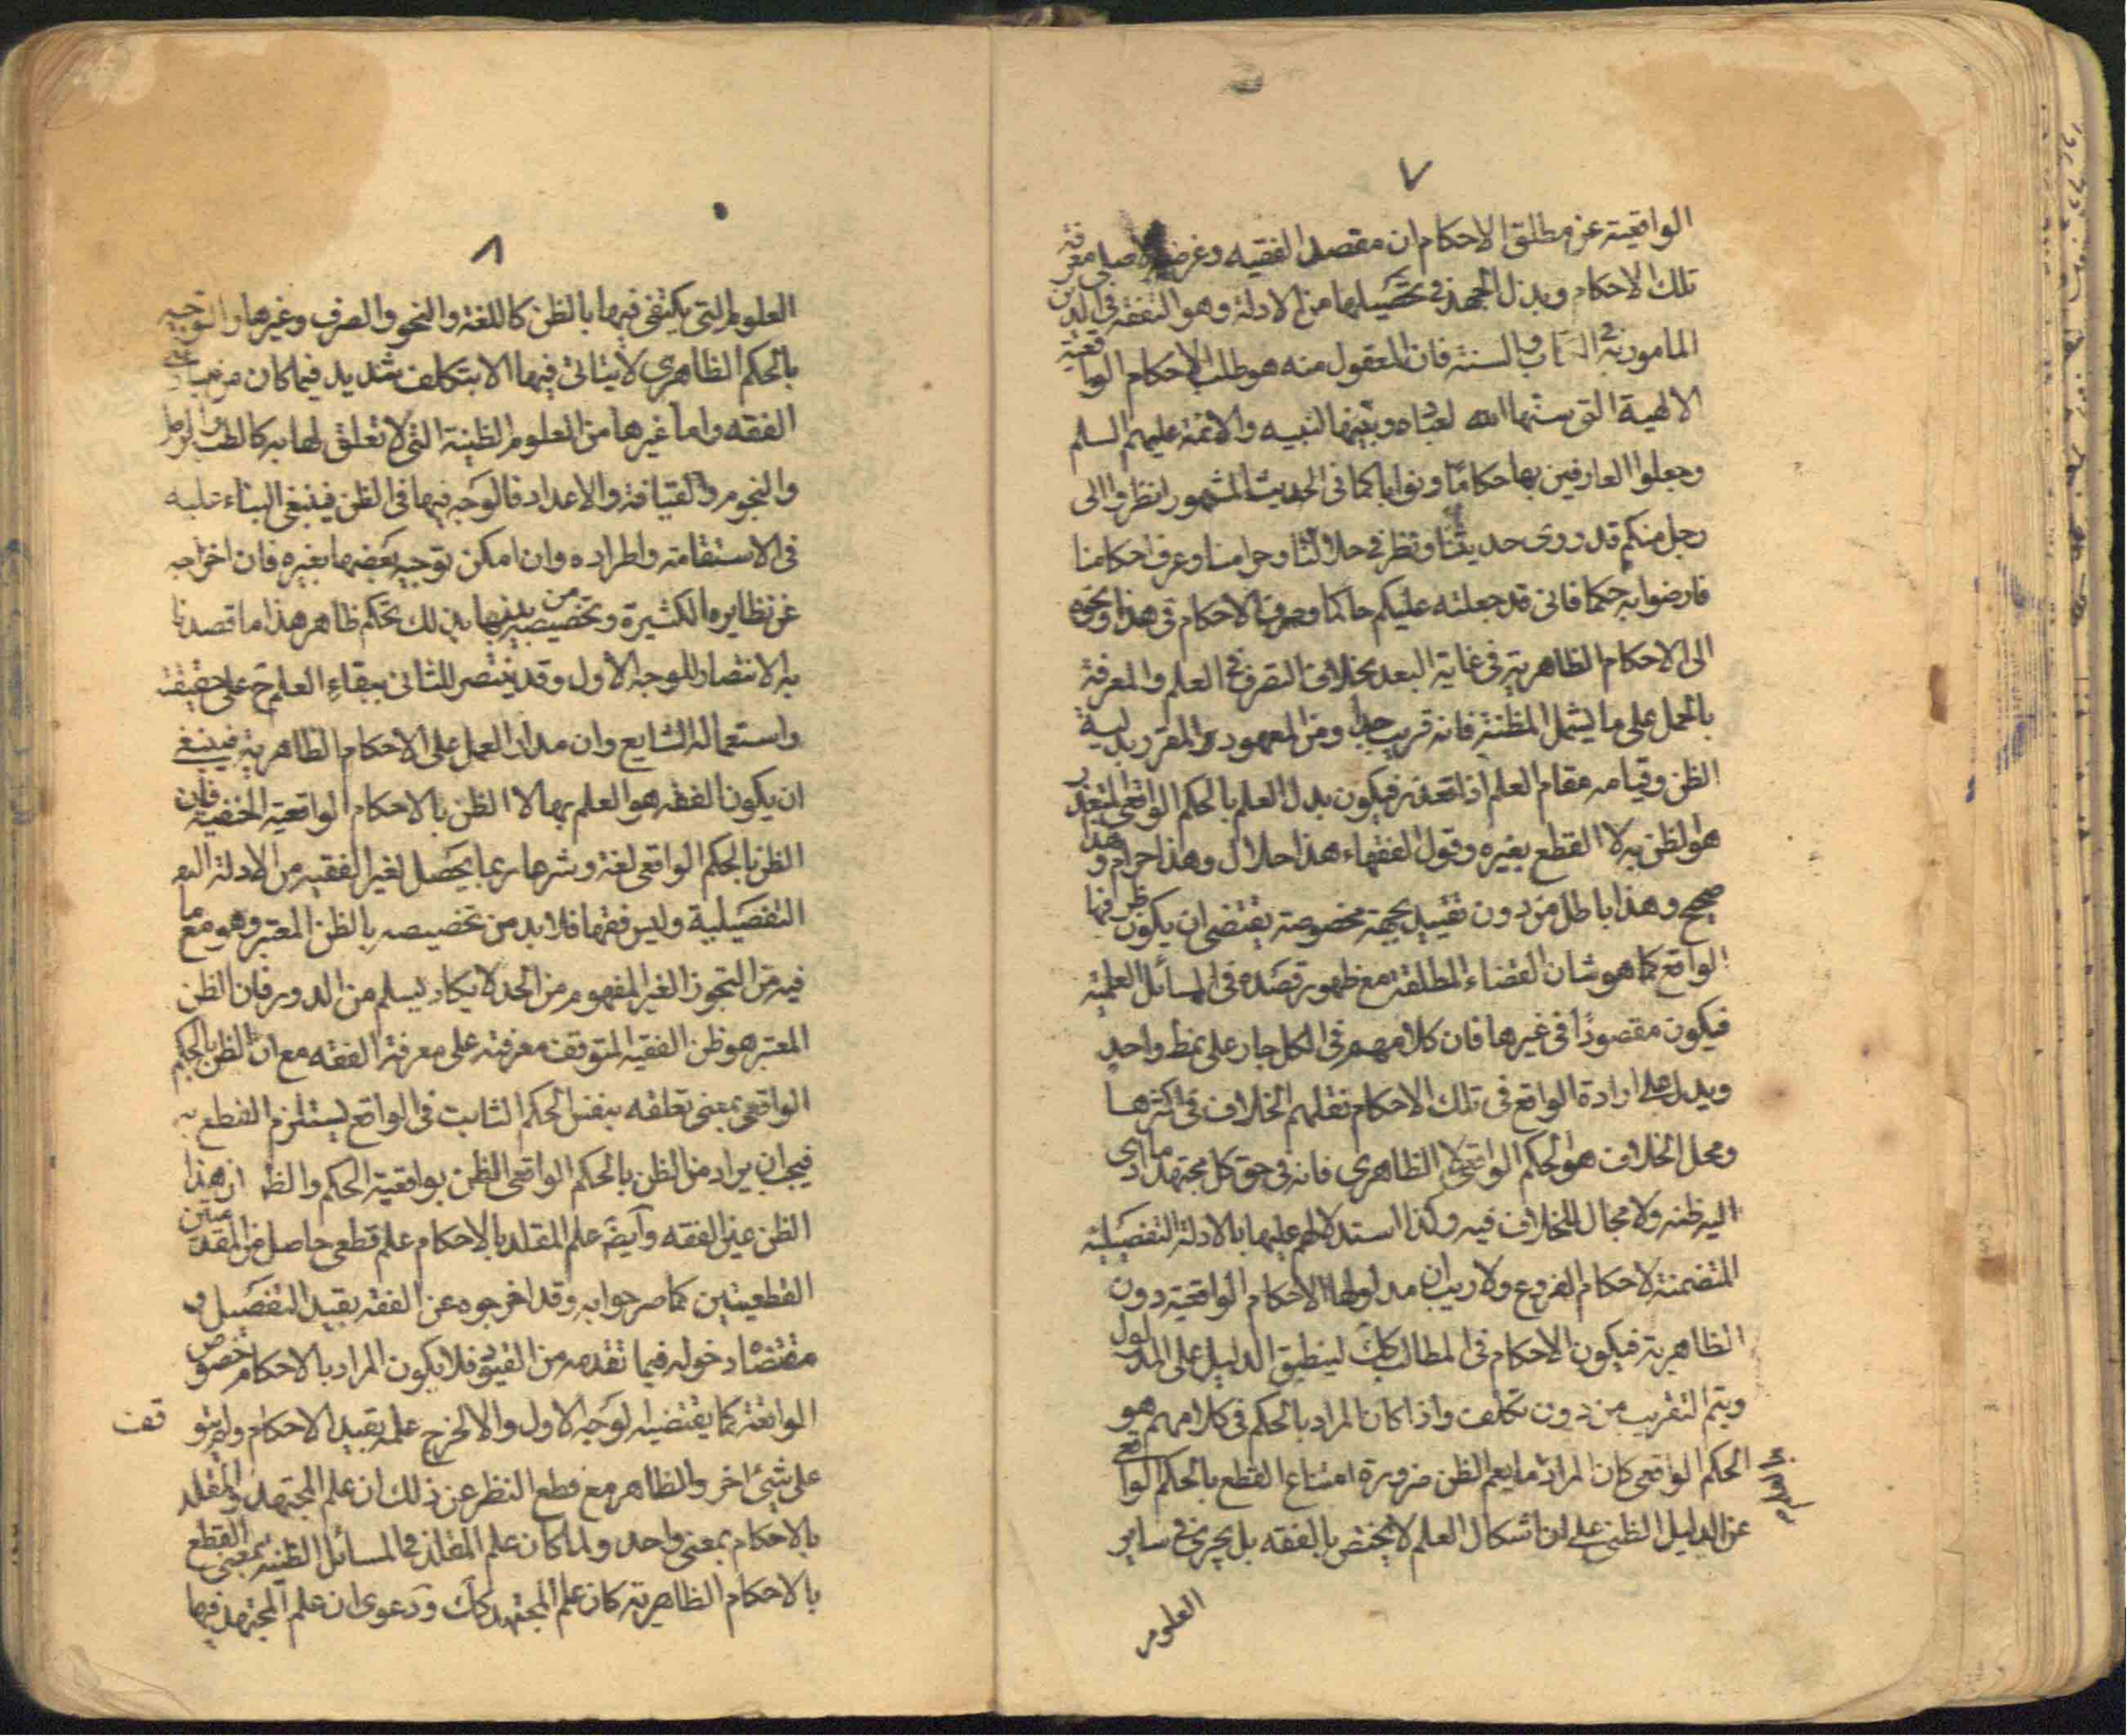 ٧
الواقعية عن مطلق الاحكام ان مقصد الفقيه وغرضه الاصلى معرفة
تلك الاحكام وبذل الجهد فى تحصيلها من الادلة وهو التفقه فى الدين
المامور به فى الكتاب والسنة فان المعقول منه هو طلب الاحكام الواقعية
الالهية التى سنها الله لعباده وبينها لنبيه والائمة عليهم السلم
وجعلوا العارفين بها حكاما ونوابا كما فى الحديث المشهور انظروا الى
رجل منكم قد روى حديثنا ونظر فى حلالنا وحرامنا وعرف احكامنا
فارضوا به حكما فانى قد جعلته عليكم حاكما وصرف الاحكام فى هذا ونحوه
الى الاحكام الظاهرية فى غاية البعد بخلاف التصرف فى العلم والمعرفة
بالحمل على ما يشمل المظنة فانه قريب جدا ومن المعهود والمقرر بدلية
الظن وقيامه مقام العلم اذا تعذر فيكون بدل العلم بالحكم الواقعى المتعذر
هو الظن به لا القطع بغيره وقول الفقهاء هذا حلال وهذا حرام وهذا
صحيح وهذا باطل من دون تقييد بجهة مخصوصة يقتضى ان يكون ظرفها
الواقع كما هو شان القضاء المطلقة مع ظهور قصده فى المسائل العلمية
فيكون مقصودًا فى غيرها فان كلامهم فى الكل جار على نمط واحد
ويدل على ارادة الواقع فى تلك الاحكام نقلهم الخلاف فى اكثرها
ومحل الخلاف هو الحكم الواقعى لا الظاهرى فانه فى حق كل مجتهد ما ادى
اليه ظنه ولا مجال للخلاف فيه وكذا استدلالهم عليها بالادلة التفصيلية
المتضمنة لاحكام الفروع ولا ريب ان مدلولها الاحكام الواقعية دون
الظاهرية فيكون الاحكام فى المطالب كك لينطبق الدليل على المدلول
ويتم التقريب من دون تكلف واذا كان المراد بالحكم فى كلامهم هو
الحكم الواقعى كان المراد ما يعم الظن ضرورة امتناع القطع بالحكم الواقع
عن الدليل الظنى على ان اشكال العلم لا يختص بالفقه بل يجرى فى ساير
العلوم
٨
العلوم التى يكتفى فيها بالظن كاللغة والنحو والصرف وغيرها والتوجيه
بالحكم الظاهرى لا يتاتى فيها الا بتكلف شديد فيما كان من مبادى
الفقه واما غيرها من العلوم الظنية التى لا تعلق لها به كالطب والرمل
والنجوم والقيافة والاعداد فالوجه فيها فى الظن فينبغى البناء عليه
فى الاستقامته واطراده وان امكن توجيه بعضها بغيره فان اخراجه
عن نظايره الكثيرة وتخصيصه من بينها بذلك تحكم ظاهر هذا ما قصدنا
به الانتصار للوجه الاول وقد ينتصر للثانى ببقاء العلم ح على حقيقته
واستعماله الشايع وان مدار العمل على الاحكام الظاهرية فينبغى
ان يكون الفقه هو العلم بها لا الظن بالاحكام الواقعية الخفية فان
الظن بالحكم الواقعى لغة وشرعا ربما يحصل لغير الفقيه من الادلة
التفصيلية وليس فقها فلا بد من تخصيصه بالظن المعتبر وهو مع ما
فيه من التجوز الغير المفهوم من الحد لا يكاد يسلم من الدور فان الظن
المعتبر هو ظن الفقيه المتوقف معرفته على معرفة الفقه مع ان الظن بالحكم
الواقعى بمعنى تعلقه بنفس الحكم الثابت فى الواقع يستلزم القطع به
فيجب ان يراد من الظن بالحكم الواقعى الظن بواقعية الحكم والظ ان هذا
الظن عين الفقه وايضً علم المقلد بالاحكام علم قطعى حاصل من المقدمتين
القطعيتين كما صرحوا به وقد اخرجوه عن الفقه بقيد التفصيل و
مقتضاه دخوله فيما تقدمه من القيود فلا يكون المراد بالاحكام خصوص
الواقعة كما يقتضيه الوجه الاول والا لخرج علمه بقيد الاحكام ولم يتوقف
على شئ اخر والظاهر مع قطع النظر عن ذلك ان علم المجتهد والمقلد
بالاحكام بمعنى واحد ولما كان علم المقلد فى المسائل الظنية بمعنى القطع
بالاحكام الظاهرية كان علم المجتهد كك ودعوى ان علم المجتهد فيها